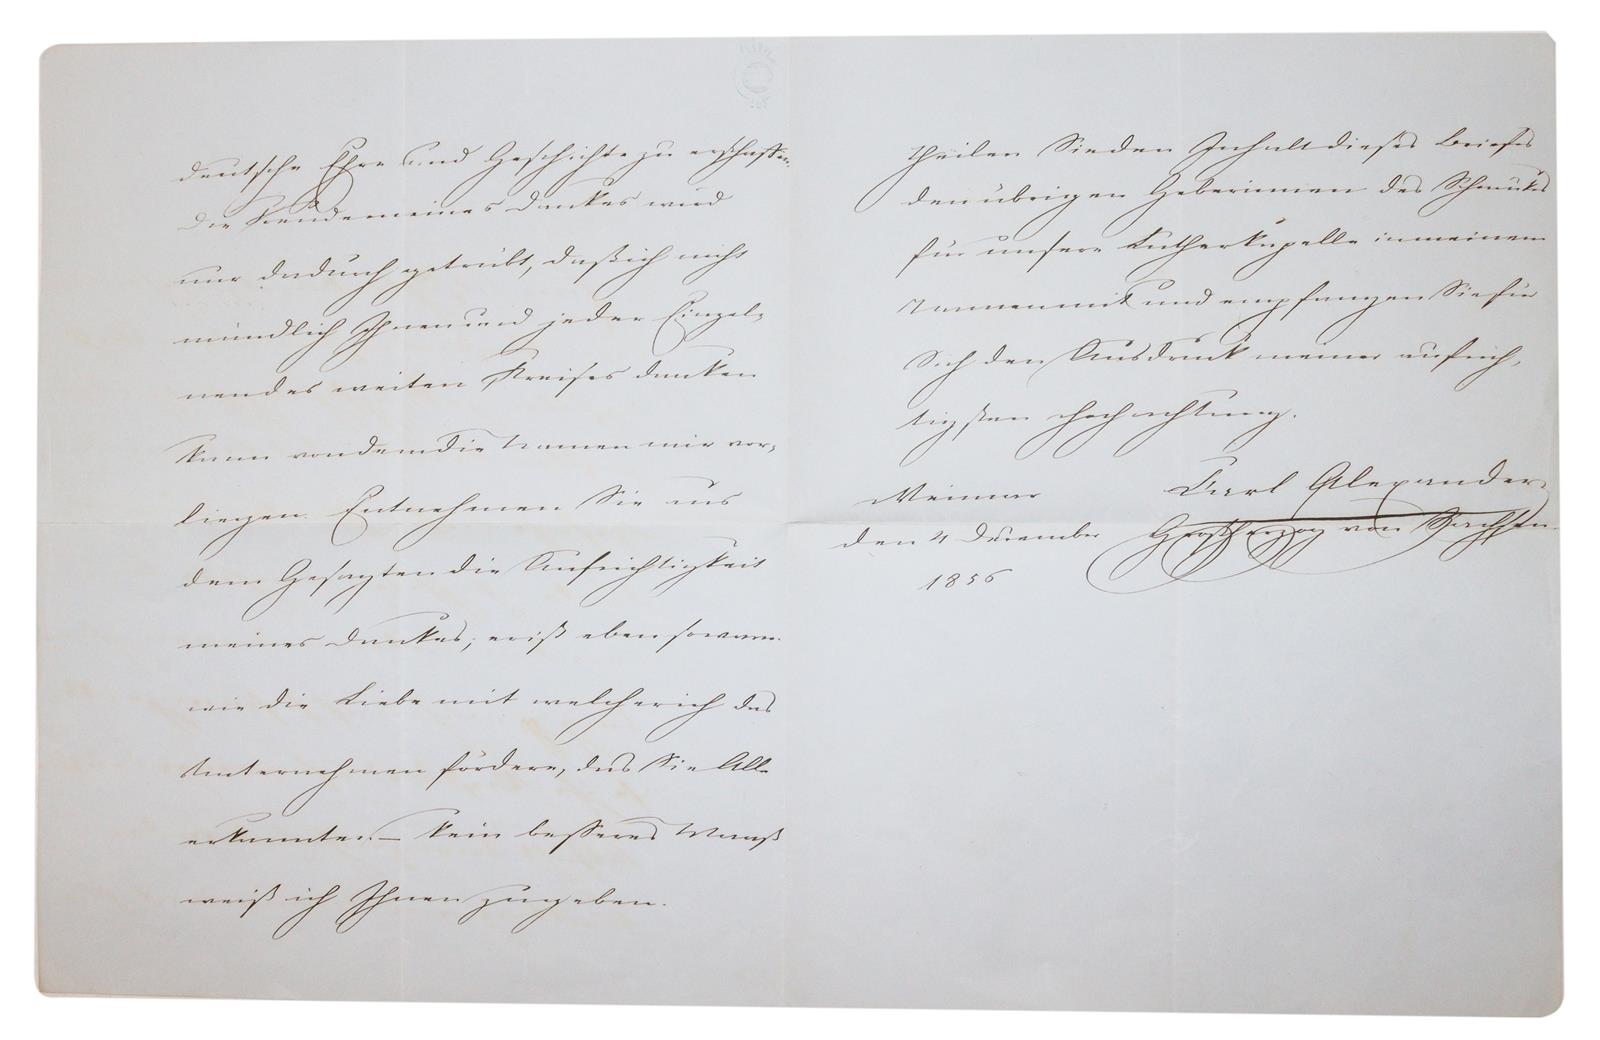 deutsche Ehre und Geschichte zu erschaffen.
Die Freude meines Dankes wird
nur dadurch getrübt, daß ich nicht
mündlich Ihnen und jeder Einzel-
nen des weiten Kreises danken
kann von dem die Namen mir vor-
liegen. Entnehmen Sie aus
dem Gesagten die Aufrichtigkeit
meines Dankes; er ist eben so warm
wie die Liebe mit welcher ich das
Unternehmen fördere, das Sie Alle
erkannten. – kein besseres Maaß
weiß ich Ihnen zu geben.
Theilen Sie den Inhalt dieses Briefes
den übrigen Geberinnen des Schmuckes
für unsere Lutherkapelle in meinem
Namen mit und empfangen Sie für
Sich den Ausdruck meiner aufrich-
tigsten Hochachtung.
Weimar
den 4 December
1856
Carl Alexander
Großherzog von Sachsen